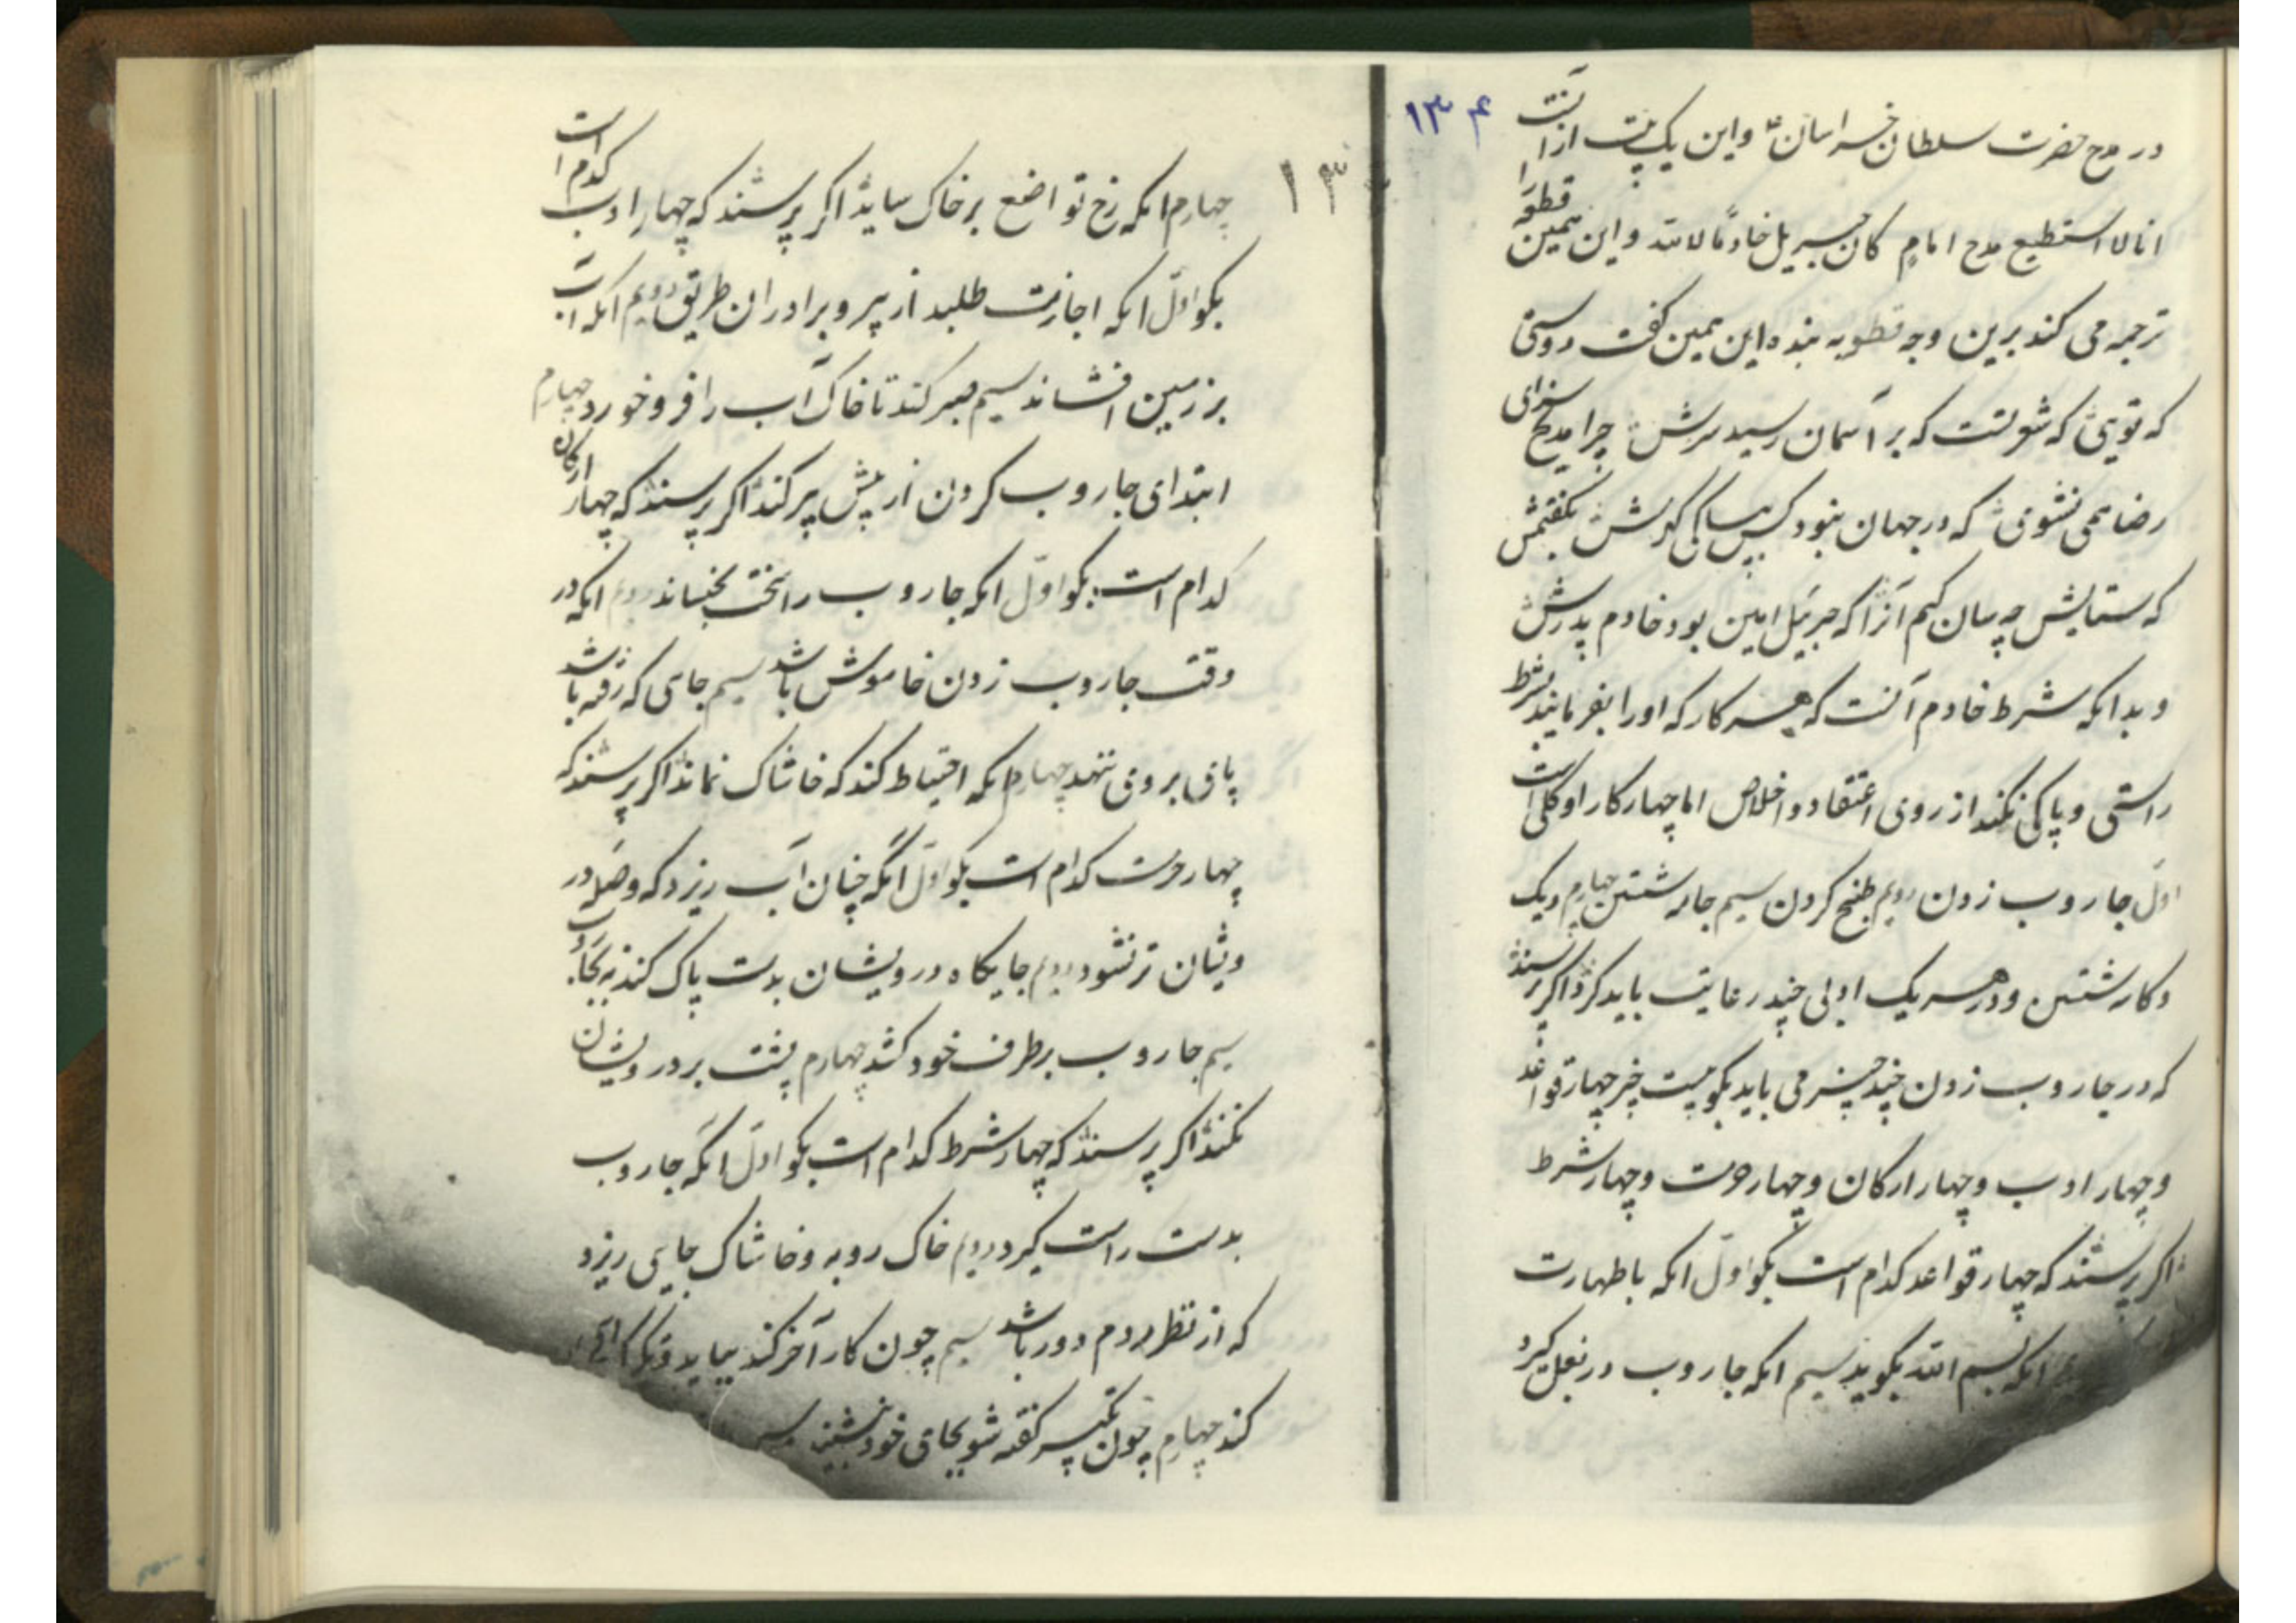 ۱۳۴
در مدح حضرت سلطان خراسان ع و این یک بیت از آنست
انا لا استطیع مدح امامٍ کان جبریل خادمًا لابیه و ابن یمین قطعه را
ترجمه می کند برین وجه قطعه بنده ابن یمین گفت دوستی
که تویی که شعر تست که بر آسمان رسید سرش چرا مدیح سزای
رضا همی نشوی که در جهان نبود کس بپاکی گهرش بگفتمش
که ستایش چه سان کنم آنرا که جبرئیل امین بود خادم پدرش
و بدانکه شرط خادم آنست که هر کار که او را بفرمایند بشرط
راستی و پاکی بکند از روی اعتقاد و اخلاص اما چهار کار او کلی است
اول جاروب زدن دویم طبخ کردن سیم جامه شستن چهارم دیک
و کاسه شستن و در هر یک ادبی چند رعایت باید کرد اگر پرسند
که در جاروب زدن چند چیز می باید بگو بیست چیز چهار قواعد
و چهار ادب و چهار ارکان و چهار حرمت و چهار شرط
اگر پرسند که چهار قواعد کدام است بگو اول آنکه با طهارت
آنکه بسم الله بگوید سیم آنکه جاروب در بغل گیرد
۱۳
چهارم آنکه رخ تواضع بر خاک ساید اگر پرسند که چهار ادب کدام است
بگو اول آنکه اجازت طلبد از پیر و برادران طریق دویم آنکه آب
بر زمین افشاند سیم صبر کند تا خاک آب را فرو خورد چهارم
ابتدای جاروب کردن از پیش پیر کند اگر پرسند که چهار ارکان
کدام است بگو اول آنکه جاروب را سخت بخیساند دویم آنکه در
وقت جاروب زدن خاموش باشد سیم جای که رفته باشد
پای بروی ننهد چهارم آنکه احتیاط کند که خاشاک نماند اگر پرسند که
چهار حرمت کدام است بگو اول آنکه چنان آب ریزد که وصله در
ویشان تر نشود دویم جایگاه درویشان بدست پاک کند نه بجاروب
سیم جاروب بر طرف خود کشد چهارم پشت بر درویشان
نکند اگر پرسند که چهار شرط کدام است بگو اول آنکه جاروب
بدست راست گیرد دویم خاک روبه و خاشاک جایی ریزد
که از نظر مردم دور باشد سیم چون کار آخر کند بیاید و
کند چهارم چون تکبیر گفته شود بجای خود نشیند